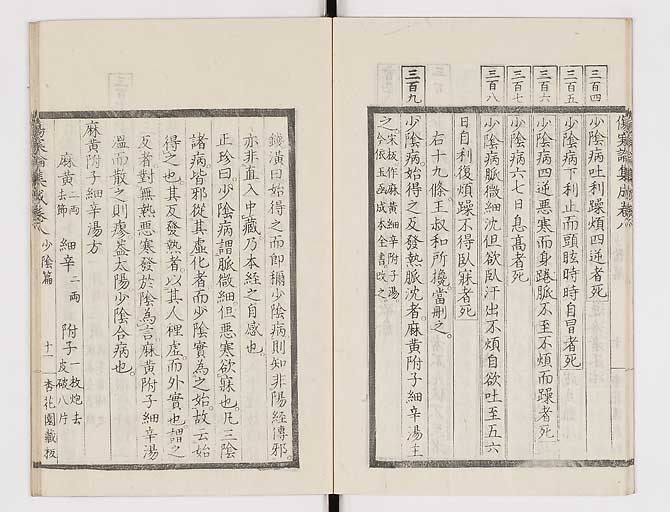 三百四
少陰病吐利躁煩四逆者死
三百五
少陰病下利止而頭眩時時自冒者死
三百六
少陰病四逆惡寒而身踡脈不至不煩而躁者死
三百七
少陰病六七日息高者死
三百八
少陰病脈微細沈但欲臥汗出不煩自欲吐至五六
日自利復煩躁不得臥寐者死
右十九條王叔和所攙當刪之。
三百九
少陰病。始得之反發熱脈沈者。麻黃附子細辛湯主
之 宋板作麻黃細辛附子湯
今依玉函成本全書改之
傷寒論集成卷八
錢潢曰始得之而即稱少陰病則知非陽經傳邪。
亦非直入中藏乃本經之自感也。
正珍曰。少陰病謂脈微細但惡寒欲寐也。凡三陰
諸病皆邪從其虛化者而少陰實為之始。故云始
得之也其反發熱者以其人裡虛。而外實也謂之
反者對無熱惡寒發於陰為言。麻黃附子細辛湯
溫而散之則瘳。蓋太陽少陰合病也。
麻黃附子細辛湯方
麻黃 二兩去節 細辛 二兩 附子 一枚炮去皮破八片
傷寒論集成卷八 少陰篇 十一 杏花園藏板